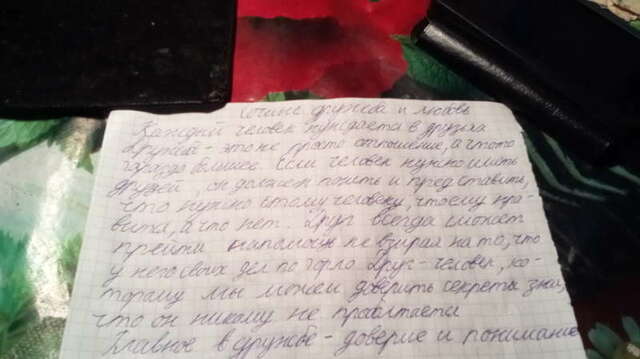 Сочине дружба и любовь
Каждый человек нуждается в друзьях
Дружба - это не просто отношение, а что то
гараздо большее. Если человек нужно иметь
друзей, он должен понять и представить,
что нужно этому человеку, что ему нра-
вится, а что нет. Друг всегда сможет
прейти на помощь не взирая на то, что
у него своих дел по горло Друг - человек, ко-
торому мы можем доверить секреты зная,
что он никому не проболтается
Главное в дружбе - доверие и понимание